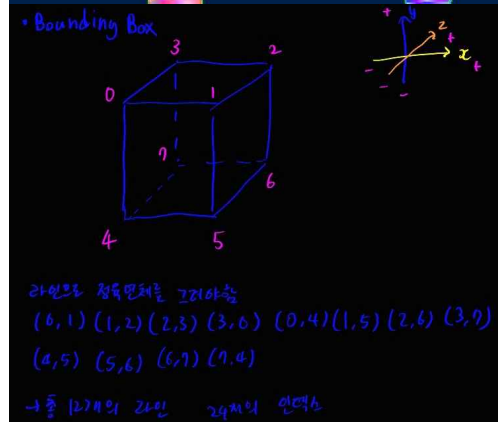 • Bounding Box
+ y
z +
x +
-
-
-
3 2
0 1
7
6
4 5
라인으로 정육면체를 그려야함
(0,1) (1,2) (2,3) (3,0) (0,4) (1,5) (2,6) (3,7)
(4,5) (5,6) (6,7) (7,4)
→ 총 12개의 라인 24개의 인덱스